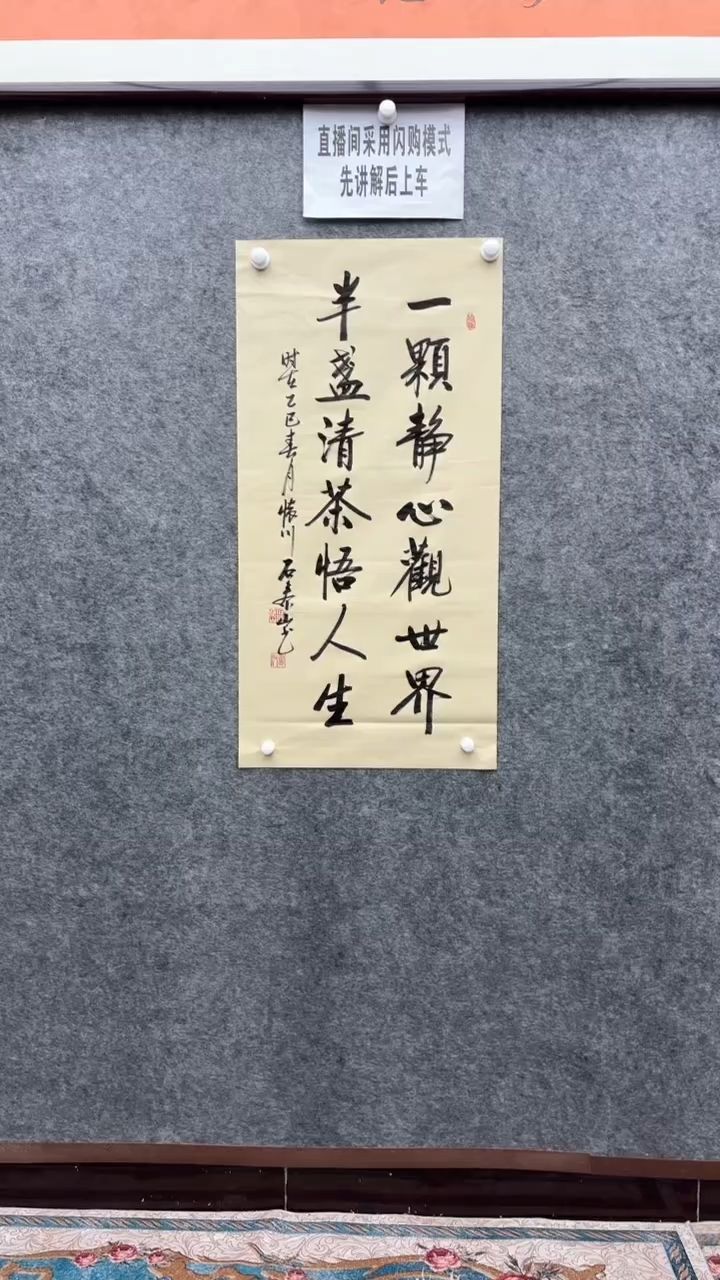 直播间采用闪购模式
先讲解后上车
一顆静心觀世界
半盏清茶悟人生
时在乙巳春月懷川石泰